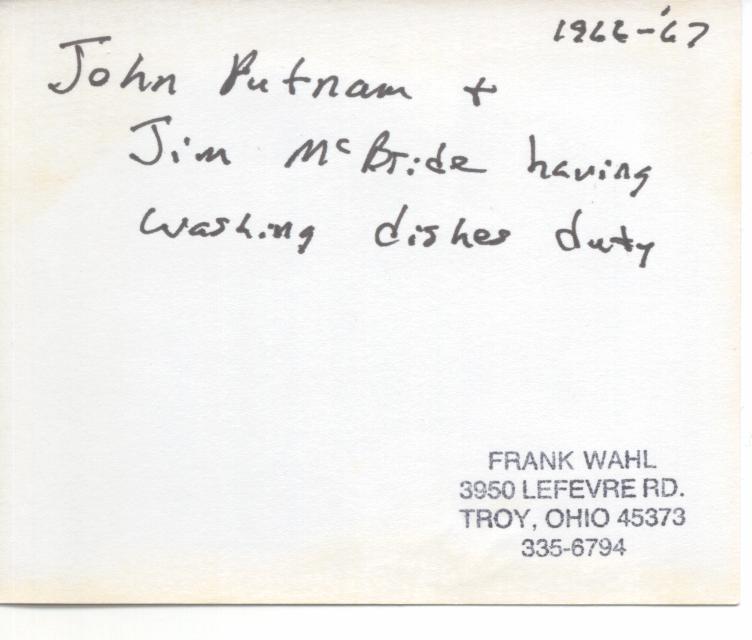 1966-'67
John Putnam +
Jim McBride having
washing dishes duty
FRANK WAHL
3950 LEFEVRE RD.
TROY, OHIO 45373
335-6794